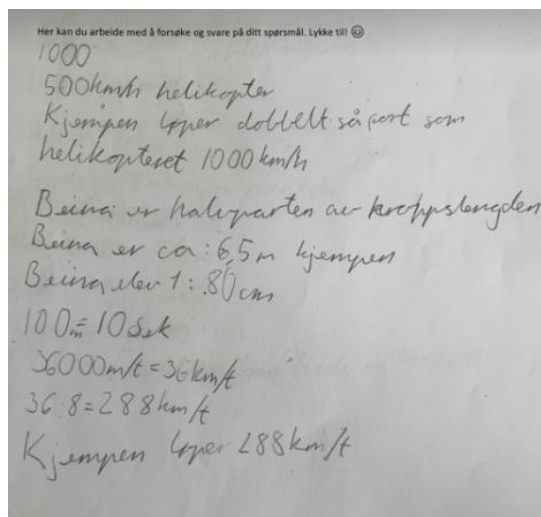 Her kan du arbeide med å forsøke og svare på ditt spørsmål. Lykke til! ☺
1000
500km/h helikopter
Kjempen løper dobbelt så fort som
helikopteret 1000 km/h
Beina er halvparten av kroppslengden
Beina er ca: 6,5 m kjempen
Beina elev 1: 80cm
100m = 10 sek
36000m/t = 36km/t
36·8=288km/t
Kjempen løper 288km/t